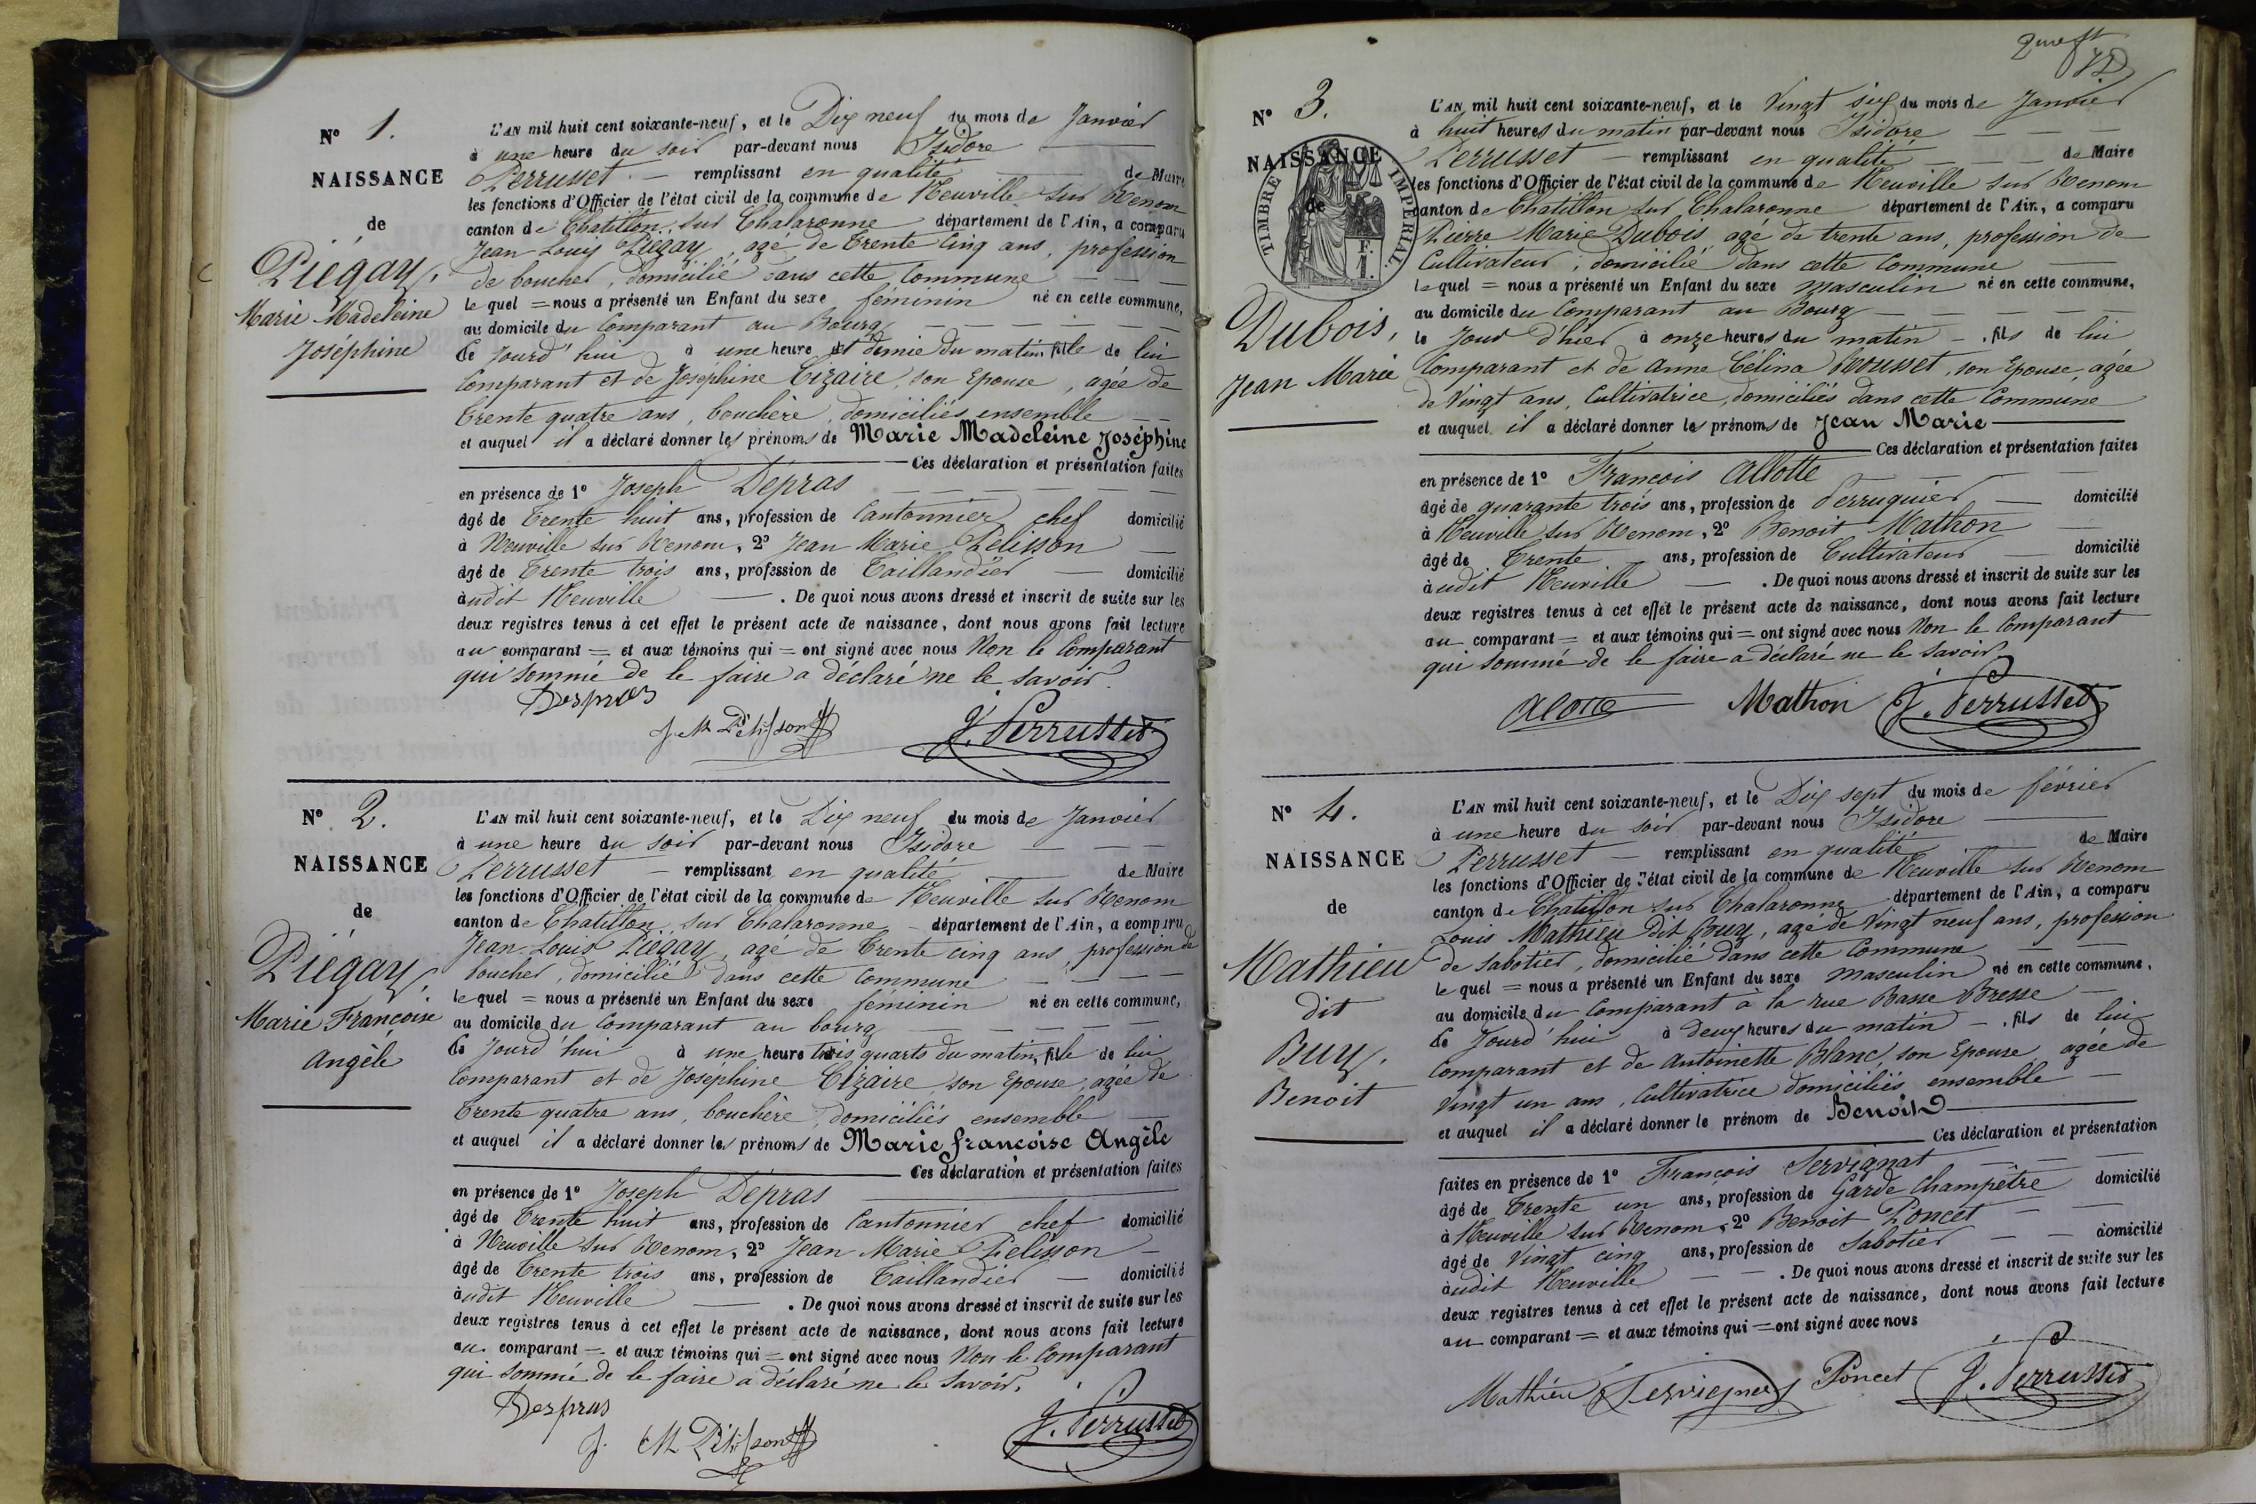 N° 1.
NAISSANCE
de
Piégay,
Marie Madeleine
Joséphine
L'AN mil huit cent soixante-neuf, et le Dix neuf du mois de Janvier
à une heure du soir par-devant nous Isidore
Perrusset remplissant en qualité de Maire
les fonctions d'Officier de l'état civil de la commune de Neuville sur Renom
canton de Chatillon sur Chalaronne département de l'Ain, a comparu
Jean Louis Piégay, agé de trente cinq ans, profession
de boucher, domicilié dans cette commune
le quel = nous a présenté un Enfant du sexe féminin né en cette commune,
au domicile du comparant au Bourg
Ce jourd'hui à une heure et demie du matin, fille de lui
Comparant et de Joséphine Cizaire, son Epouse, agée de
trente quatre ans, bouchère, domiciliés ensemble
et auquel il a déclaré donner les prénoms de Marie Madeleine Joséphine
Ces déclaration et présentation faites
en présence de 1° Joseph Dépras
âgé de trente huit ans, profession de Cantonnier chef domicilié
à Neuville sur Renom, 2° Jean Marie Pélisson
âgé de trente trois ans, profession de Taillandier domicilié
audit Neuville. De quoi nous avons dressé et inscrit de suite sur les
deux registres tenus à cet effet le présent acte de naissance, dont nous avons fait lecture
au comparant = et aux témoins qui = ont signé avec nous Non le Comparant
qui sommé de le faire a déclaré ne le savoir.
Despras
J. M Pélisson J. Perrusset
N° 2.
NAISSANCE
de
Piégay,
Marie Françoise
Angèle
L'AN mil huit cent soixante-neuf, et le Dix neuf du mois de Janvier
à une heure du soir par-devant nous Isidore
Perrusset remplissant en qualité de Maire
les fonctions d'Officier de l'état civil de la commune de Neuville sur Renom
canton de Chatillon sur Chalaronne département de l'Ain, a comparu
Jean Louis Piégay, agé de trente cinq ans, profession de
boucher, domicilié dans cette commune
le quel = nous a présenté un Enfant du sexe féminin né en cette commune,
au domicile du comparant au bourg
Ce jourd'hui à une heure trois quarts du matin, fille de lui
Comparant et de Joséphine Cizaire son Epouse, agée de
trente quatre ans, bouchère, domiciliés ensemble
et auquel il a déclaré donner les prénoms de Marie françoise Angèle
Ces déclaration et présentation faites
en présence de 1° Joseph Dépras
âgé de trente huit ans, profession de Cantonnier chef domicilié
à Neuville sur Renom, 2° Jean Marie Pelisson
âgé de trente trois ans, profession de Taillandier domicilié
audit Neuville. De quoi nous avons dressé et inscrit de suite sur les
deux registres tenus à cet effet le présent acte de naissance, dont nous avons fait lecture
au comparant = et aux témoins qui = ont signé avec nous Non le Comparant
qui sommé de le faire a déclaré ne le savoir.
Despras
J. M Pélisson J. Perrusset
N° 3.
TIMBRE IMPERIAL
F.
1.
NAISSANCE
de
Dubois,
Jean Marie
L'AN mil huit cent soixante-neuf, et le Vingt six du mois de Janvier
à huit heures du matin par-devant nous Isidore
Perrusset remplissant en qualité de Maire
les fonctions d'Officier de l'état civil de la commune de Neuville sur Renom
canton de Chatillon sur Chalaronne département de l'Ain, a comparu
Pierre Marie Dubois, agé de trente ans, profession de
Cultivateur, domicilié dans cette commune
le quel = nous a présenté un Enfant du sexe masculin né en cette commune,
au domicile du comparant au Bourg
le Jour d'hier à onze heures du matin, fils de lui
Comparant et de Anne Célina Rousset, son Epouse, agée
de Vingt ans, Cultivatrice, domiciliés dans cette Commune
et auquel il a déclaré donner les prénoms de Jean Marie
Ces déclaration et présentation faites
en présence de 1° François Allotte
âgé de quarante trois ans, profession de Perruquier domicilié
à Neuville sur Renom, 2° Benoit Mathon
âgé de Trente ans, profession de Cultivateur domicilié
audit Neuville. De quoi nous avons dressé et inscrit de suite sur les
deux registres tenus à cet effet le présent acte de naissance, dont nous avons fait lecture
au comparant = et aux témoins qui = ont signé avec nous Non le Comparant
qui sommé de le faire a déclaré ne le savoir
Alotte Mathon J. Perrusset
N° 4.
NAISSANCE
de
Mathieu
dit
Buy,
Benoit
L'AN mil huit cent soixante-neuf, et le Dix sept du mois de février
à une heure du soir par-devant nous Isidore
Perrusset remplissant en qualité de Maire
les fonctions d'Officier de l'état civil de la commune de Neuville sur Renom
canton de Chatillon sur Chalaronne département de l'Ain, a comparu
Louis Mathieu dit Buy, agé de Vingt neuf ans, profession
de Sabotier, domicilié dans cette Commune
le quel = nous a présenté un Enfant du sexe masculin né en cette commune,
au domicile du comparant à la rue Basse Bresse
Ce Jourd'hui à Deux heures du matin, fils de lui
Comparant et de Antoinette Blanc, son Epouse, agée de
vingt un ans, Cultivatrice domiciliés ensemble
et auquel il a déclaré donner le prénom de Benoit
Ces déclaration et présentation
faites en présence de 1° François Servignat
âgé de Trente un ans, profession de Garde champêtre domicilié
à Neuville sur Renom, 2° Benoit Poncet
âgé de Vingt cinq ans, profession de Sabotier domicilié
audit Neuville. De quoi nous avons dressé et inscrit de suite sur les
deux registres tenus à cet effet le présent acte de naissance, dont nous avons fait lecture
au comparant = et aux témoins qui = ont signé avec nous
Mathieu Servignat Poncet J. Perrusset